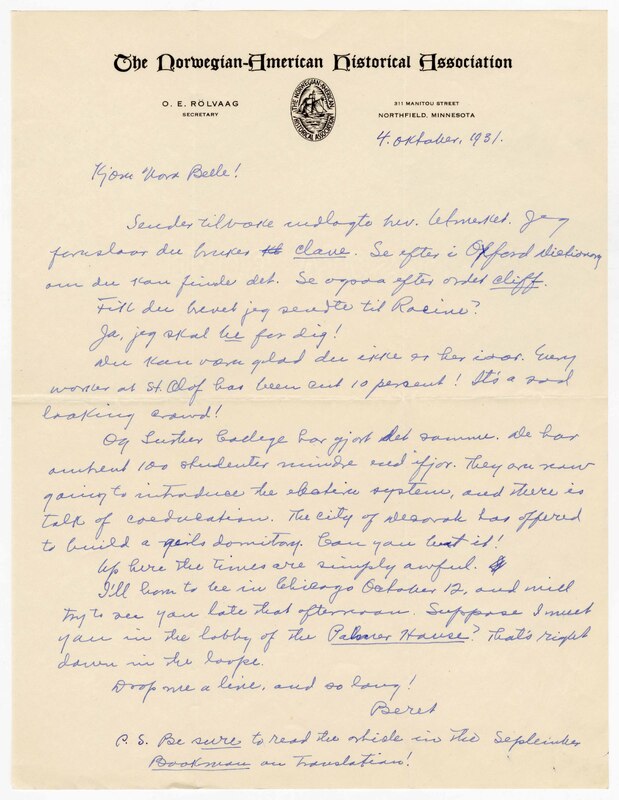 The Norwegian-American Historical Association
O. E. RÖLVAAG
SECRETARY
THE NORWEGIAN AMERICAN HISTORICAL ASSOCIATION
311 MANITOU STREET
NORTHFIELD, MINNESOTA
4. oktober, 1931.
Kjære Nora Belle!
Sender tilbake indlagte brev. Utmerket. Jeg
foreslaar du bruker clave. Se efter i Oxford Dictionary
om du kan finde det. Se ogsaa efter ordet cliff.
Fikk du brevet jeg sendte til Racine?
Ja, jeg skal be for dig!
Du kan være glad du ikke er her iaar. Every
worker at St. Olaf has been cut 10 percent! It's a sad
looking crowd!
Og Luther College har gjort det samme. De har
omtrent 100 studenter mindre end ifjor. They are now
going to introduce the elective system, and there is
talk of coeducation. The city of Decorah has offered
to build a girls domitory. Can you beat it!
Up here the times are simply awful.
I'll have to be in Chicago October 12, and will
try to see you late that afternoon. Suppose I meet
you in the lobby of the Palmer House? That's right
down in the loope.
Drop me a line, and so long!
Beret
P. S. Be sure to read the article in the September
Bookman on Translation!